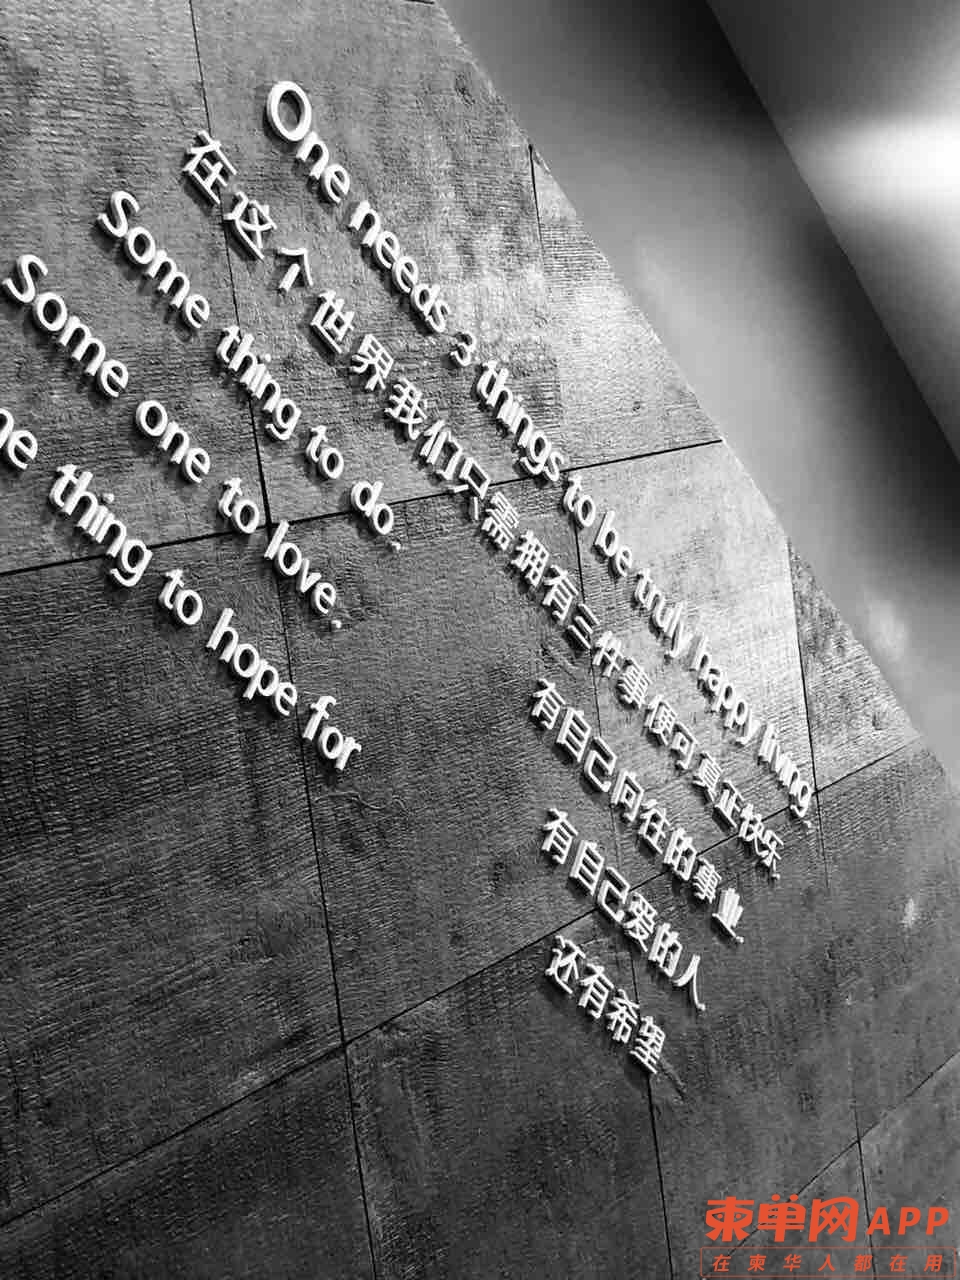 One needs 3 things to be truly happy living.
在这个世界我们只需拥有三件事便可真正快乐.
Some thing to do.
有自己向往的事业.
Some one to love.
有自己爱的人.
me thing to hope for
还有希望
柬单网APP
在柬华人都在用